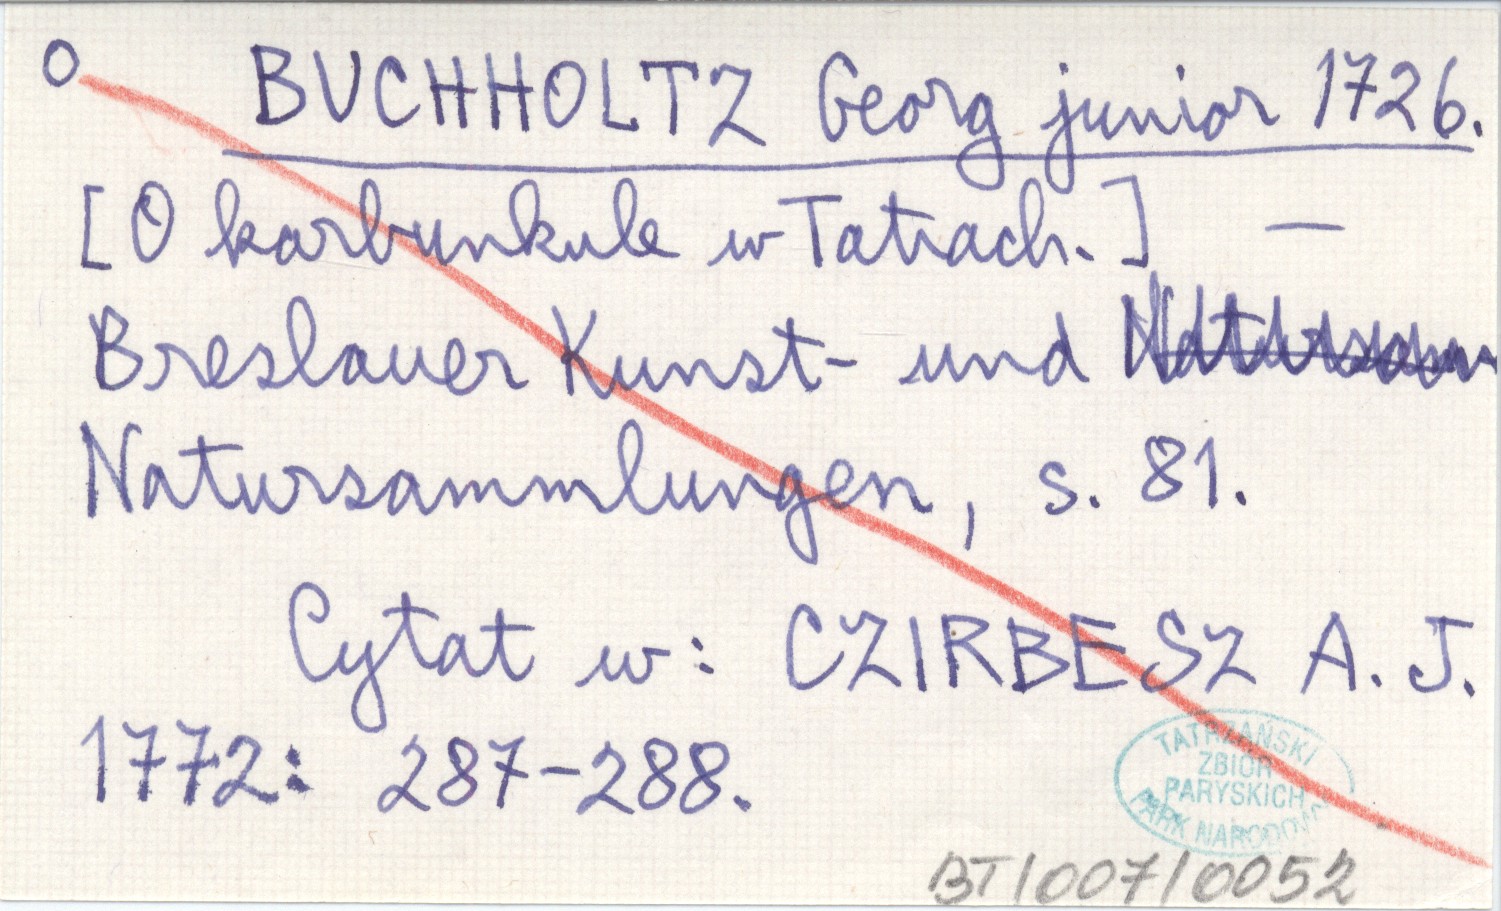 O BUCHHOLTZ Georg junior 1726.
[O karbunkule w Tatrach.] —
Breslauer Kunst- und
Natursammlungen, s. 81.
Cytat w: CZIRBESZ A. J.
1772: 287-288.
TATRZAŃSKI
ZBIÓR
PARYSKICH
PARK NARODOWY
BT/007/0052